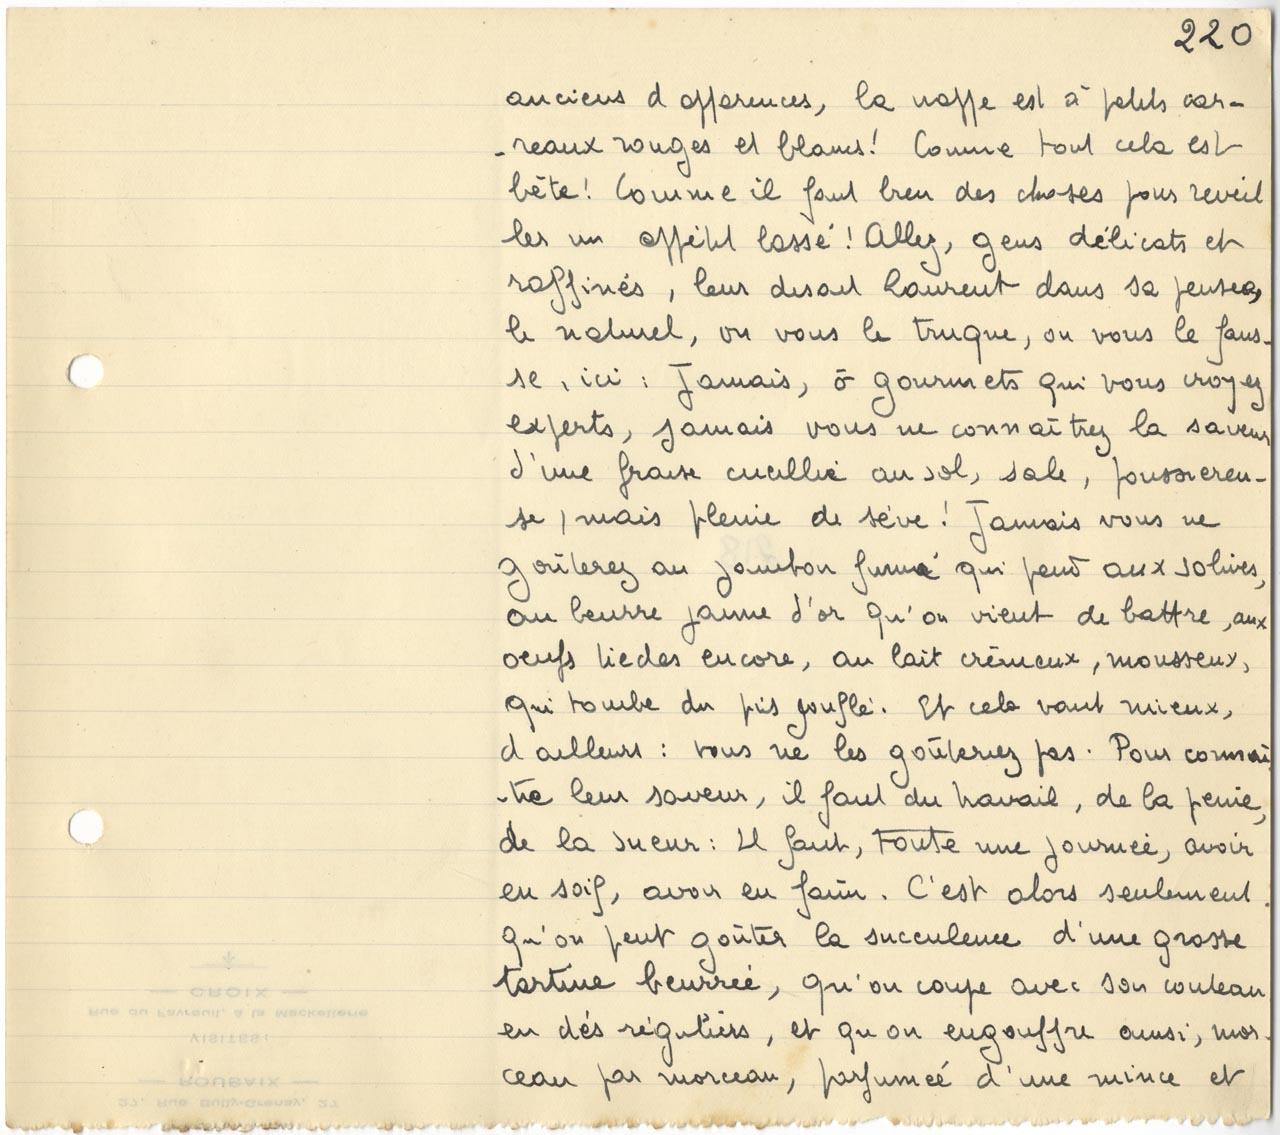 220
anciens d'apparences, la nappe est à petits car-
-reaux rouges et blancs! Comme tout cela est
bête! Comme il faut bien des choses pour reveil
ler un appétit lassé! Allez, gens délicats et
raffinés, leur disait Laurent dans sa pensée,
le naturel, on vous le truque, on vous le faus-
se, ici: Jamais, ô gourmets qui vous croyez
experts, jamais vous ne connaîtrez la saveur
d'une fraise cueillie au sol, sale, poussiéreu-
se, mais pleine de sève! Jamais vous ne
goûterez au jambon fumé qui pend aux solives,
au beurre jaune d'or qu'on vient de battre, aux
oeufs tiedes encore, au lait crémeux, mousseux,
qui tombe du pis gonflé. Et cela vaut mieux,
d'ailleurs: vous ne les goûteriez pas. Pour connaî
-tre leur saveur, il faut du travail, de la peine,
de la sueur: Il faut, toute une journée, avoir
eu soif, avoir eu faim. C'est alors seulement
qu'on peut goûter la succulence d'une grosse
tartine beurrée, qu'on coupe avec son couteau
en dés réguliers, et qu'on engouffre ainsi, mor-
ceau par morceau, parfumée d'une mince et
CROIX
Rue du Favreuil, à la Mackellerie
VISITES:
ROUBAIX
27, Rue Bully-Grenay, 27